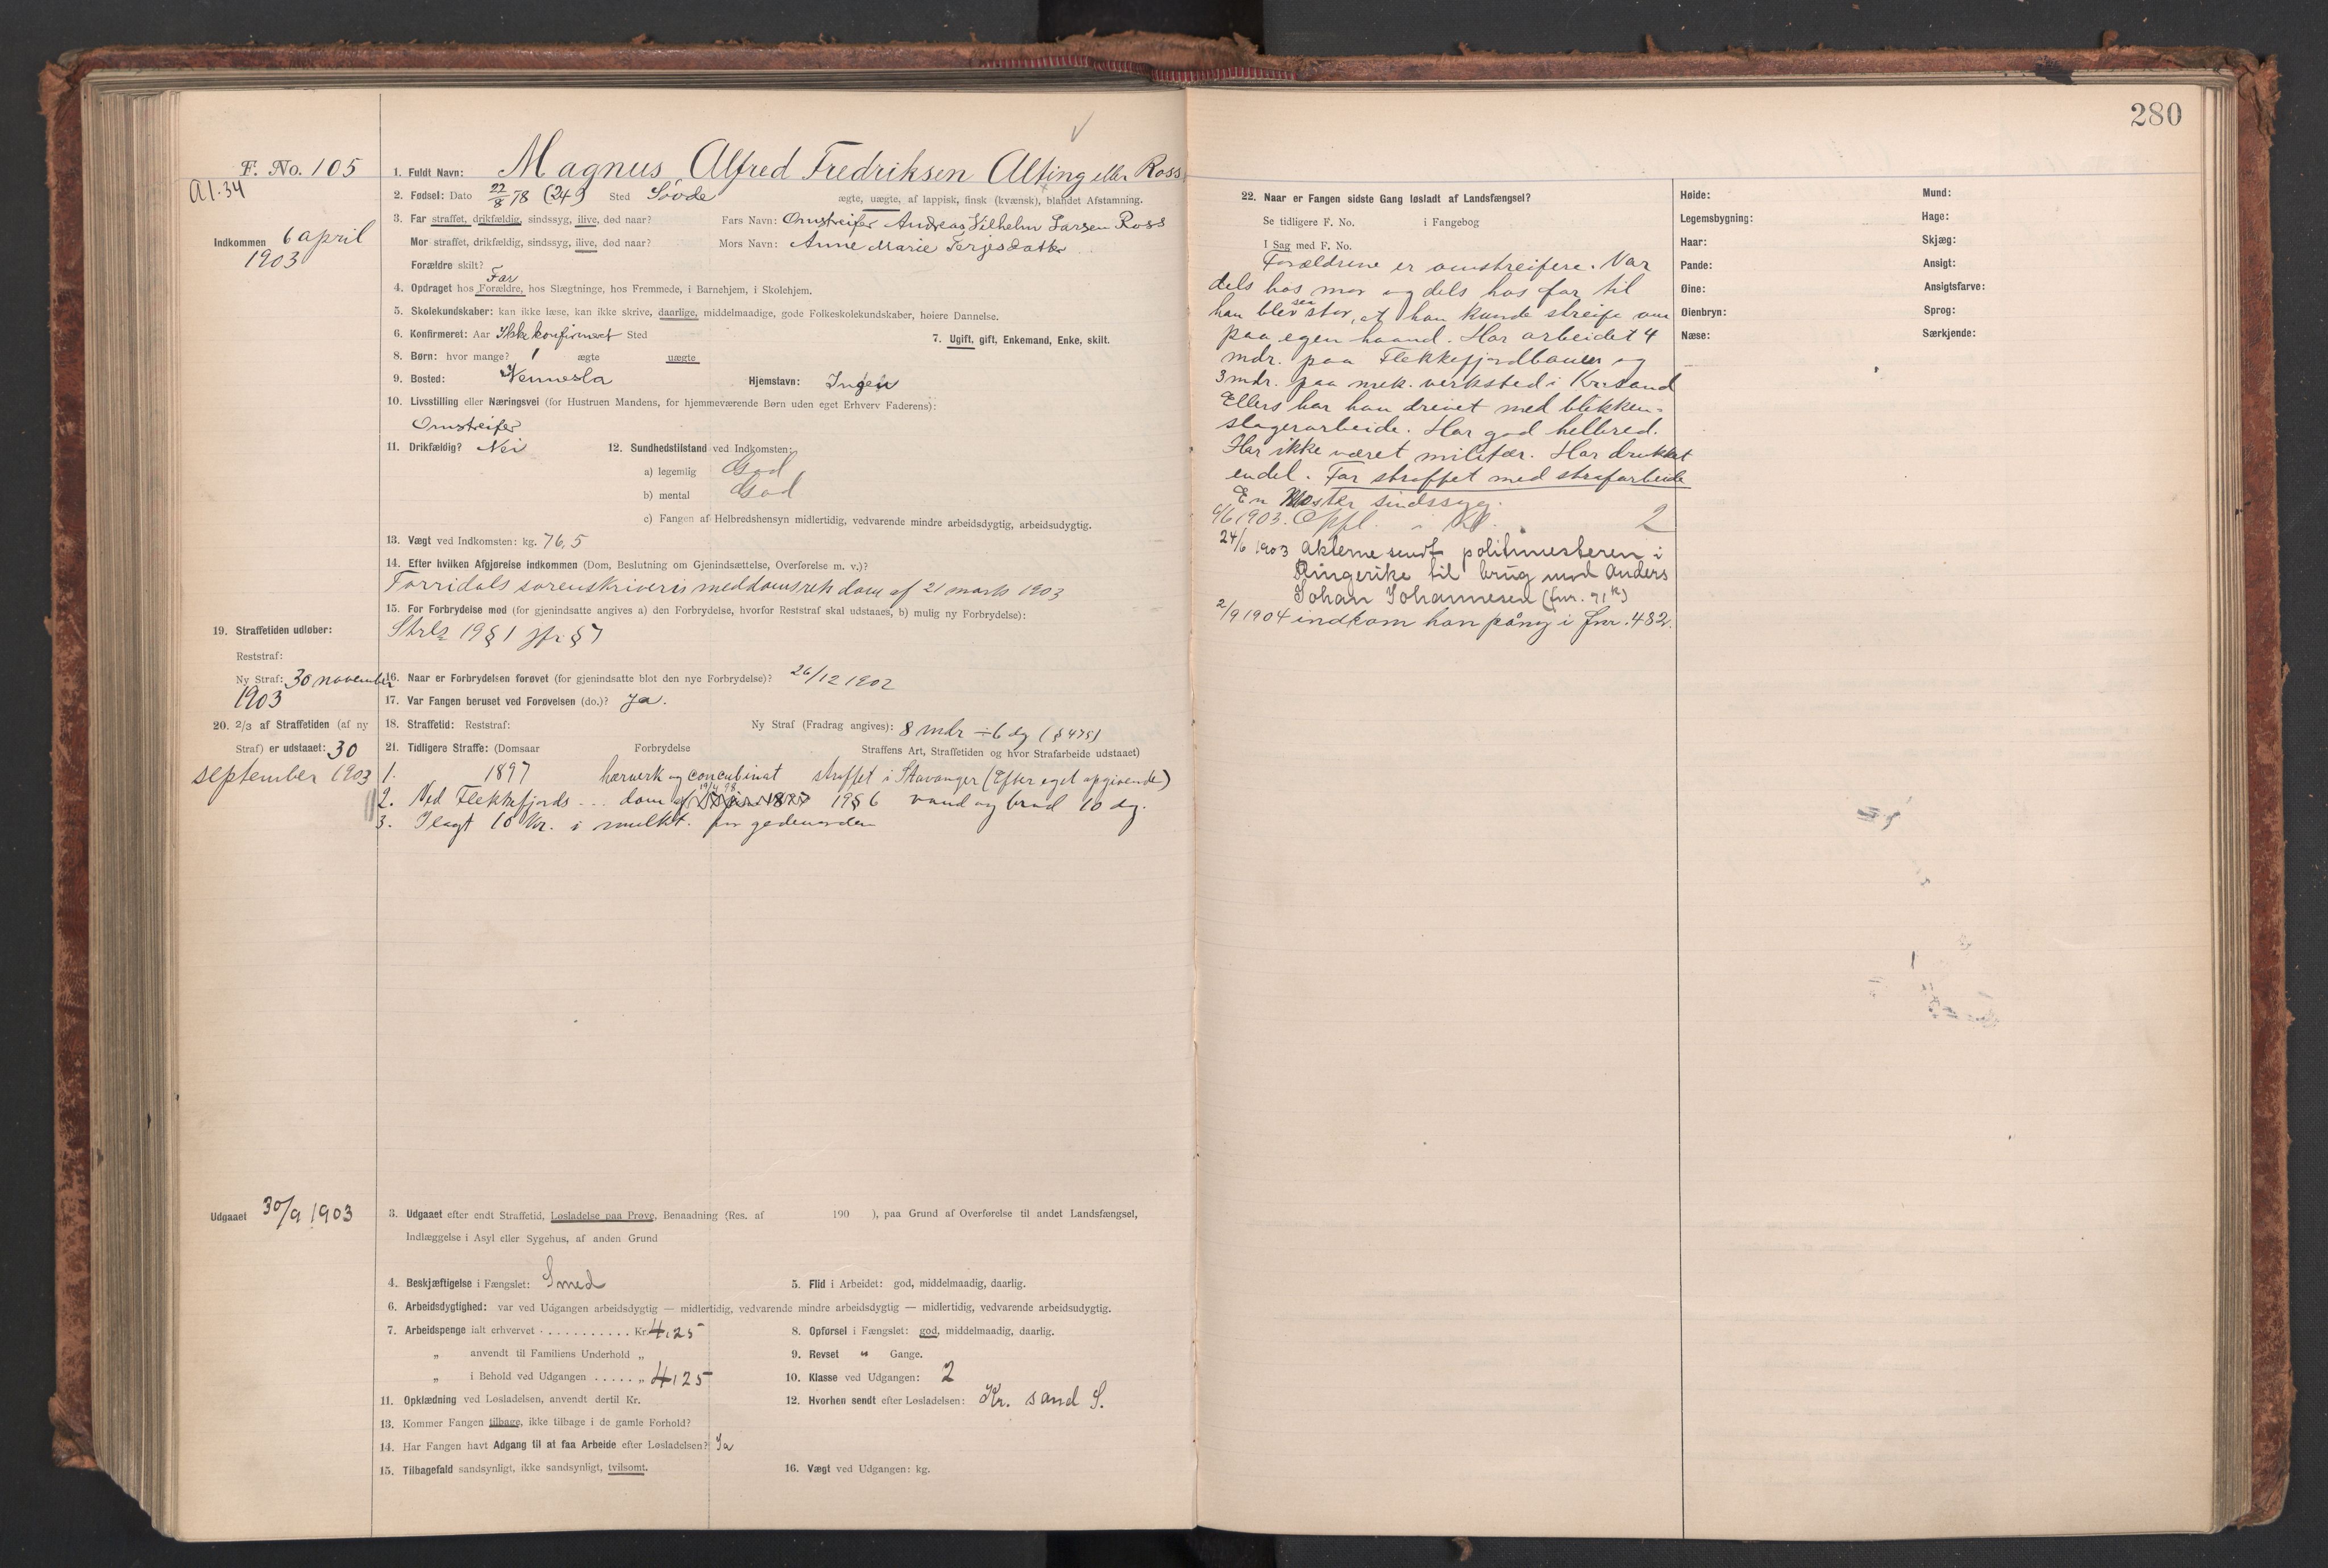 280
F. No. 105
Al. 34
Indkommen 6 april
1903
1. Fuldt Navn: Magnus Alfred Fredriksen Alting eller Ross
2. Fødsel: Dato 22/8 78 (24) Sted Søvde ægte, uægte, af lappisk, finsk (kvænsk), blandet Afstamning.
3. Far straffet, drikfældig, sindssyg, ilive, død naar? Fars Navn: Omstreifer Andreas Vilhelm Larsen Ross
Mor straffet, drikfældig, sindssyg, ilive, død naar? Mors Navn: Anne Marie Terjesdatter
Forældre skilt?
Far
4. Opdraget hos Forældre, hos Slægtninge, hos Fremmede, i Barnehjem, i Skolehjem.
5. Skolekundskaber: kan ikke læse, kan ikke skrive, daarlige, middelmaadige, gode Folkeskolekundskaber, høiere Dannelse.
6. Konfirmeret: Aar Ikke konfirmeret Sted
7. Ugift, gift, Enkemand, Enke, skilt.
8. Børn: hvor mange? 1 ægte uægte
9. Bosted: Vennesla Hjemstavn: Ingen
10. Livsstilling eller Næringsvei (for Hustruen Mandens, for hjemmeværende Børn uden eget Erhverv Faderens):
Omstreifer
11. Drikfældig? Nei 12. Sundhedstilstand ved Indkomsten:
a) legemlig God
b) mental God
c) Fangen af Helbredshensyn midlertidig, vedvarende mindre arbeidsdygtig, arbeidsudygtig.
13. Vægt ved Indkomsten: kg. 76,5
14. Efter hvilken Afgjørelse indkommen (Dom, Beslutning om Gjenindsættelse, Overførelse m. v.)?
Torridals sorenskriveris meddomsret dom af 21 marts 1903
15. For Forbrydelse mod (for gjenindsatte angives a) den Forbrydelse, hvorfor Reststraf skal udstaaes, b) mulig ny Forbrydelse):
Strl 19 § 1 jfr § 7
16. Naar er Forbrydelsen forøvet (for gjenindsatte blot den nye Forbrydelse)? 26/12 1902
17. Var Fangen beruset ved Forøvelsen (do.)? Ja.
18. Straffetid: Reststraf: Ny Straf (Fradrag angives): 8 mdr ÷ 6 dg (§ 475)
19. Straffetiden udløber:
Reststraf:
Ny Straf: 30 november
1903
20. 2/3 af Straffetiden (af ny
Straf) er udstaaet: 30
september 1903
21. Tidligere Straffe: (Domsaar Forbrydelse Straffens Art, Straffetiden og hvor Strafarbeide udstaaet)
1. 1897 hærverk og concubinat straffet i Stavanger (Efter eget opgivende)
19/4 98
2. Ved Flekkefjords ... dom af 19 § 6 vand og brød 10 dg.
3. Ilagt 10 Kr. i mulkt. for gadeuorden
Udgaaet 30/9 1903
3. Udgaaet efter endt Straffetid, Løsladelse paa Prøve, Benaadning (Res. af 190 ), paa Grund af Overførelse til andet Landsfængsel,
Indlæggelse i Asyl eller Sygehus, af anden Grund
4. Beskjæftigelse i Fængslet: Smed 5. Flid i Arbeidet: god, middelmaadig, daarlig.
6. Arbeidsdygtighed: var ved Udgangen arbeidsdygtig — midlertidig, vedvarende mindre arbeidsdygtig — midlertidig, vedvarende arbeidsudygtig.
7. Arbeidspenge ialt erhvervet . . . . . . . . . . . Kr. 4,25 8. Opførsel i Fængslet: god, middelmaadig, daarlig.
„ anvendt til Familiens Underhold „ 9. Revset " Gange.
„ i Behold ved Udgangen . . . . . „ 4,25 10. Klasse ved Udgangen: 2
11. Opklædning ved Løsladelsen, anvendt dertil Kr. 12. Hvorhen sendt efter Løsladelsen: Kr. sand S.
13. Kommer Fangen tilbage, ikke tilbage i de gamle Forhold?
14. Har Fangen havt Adgang til at faa Arbeide efter Løsladelsen? Ja
15. Tilbagefald sandsynligt, ikke sandsynligt, tvilsomt. 16. Vægt ved Udgangen: kg.
22. Naar er Fangen sidste Gang løsladt af Landsfængsel?
Se tidligere F. No. i Fangebog
I Sag med F. No.
Forældrene er omstreifere. Var
dels hos mor og dels hos far til
han blev saa stor, at han kunde streife om
paa egen haand. Har arbeidet 4
mdr. paa Flekkefjordbanen og
3 mdr. paa mek. verksted i Kr.sand
Ellers har han drevet med blikken-
slagerarbeide. Har god helbred.
Har ikke været militær. Har drukket
endel. Far straffet med strafarbeide
En Moster sindssyg.
6/6 1903. Opfl. i Kl. 2
24/6 1903 akterne sendt politimesteren i
Ringerike til brug mod Anders
Johan Johannesen (fnr. 91 )
2/9 1904 indkom han påny i fnr. 482.
Høide: Mund:
Legemsbygning: Hage:
Haar: Skjæg:
Pande: Ansigt:
Øine: Ansigtsfarve:
Øienbryn: Sprog:
Næse: Særkjende: